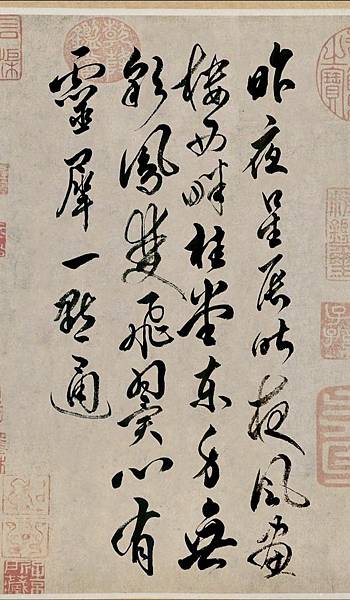 昨夜星辰昨夜風畫
樓西畔桂堂東身無
彩鳳雙飛翼心有
靈犀一點通